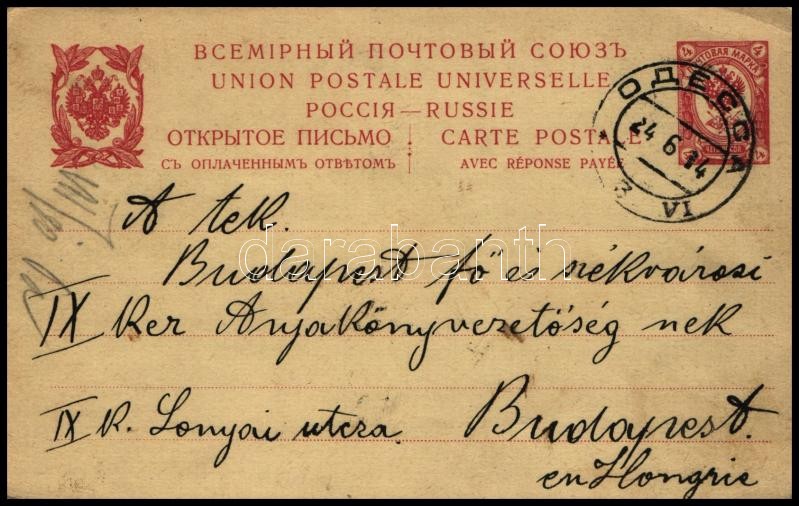 ВСЕМІРНЫЙ ПОЧТОВЫЙ СОЮЗЪ
UNION POSTALE UNIVERSELLE
РОССІЯ—RUSSIE
ОТКРЫТОЕ ПИСЬМО
СЪ ОПЛАЧЕННЫМЪ ОТВѢТОМЪ
CARTE POSTALE
AVEC RÉPONSE PAYÉE
4 ПОЧТОВАЯ МАРКА 4
ОДЕССА
24 6 14
VI
A tek.
Budapest fő és székvárosi
IX ker Anyakönyvezetőség nek
IX k. Lonyai utcza Budapest.
en Hongrie
darabanth